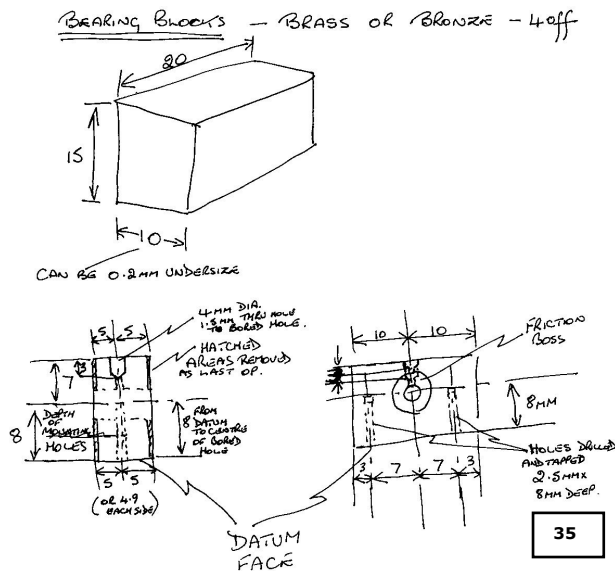 BEARING BLOCKS - BRASS OR BRONZE - 4off
20
15
10
CAN BE 0.2MM UNDERSIZE
4 MM DIA.
1.5MM THRU HOLE
TO BORED HOLE.
HATCHED
AREAS REMOVED
AS LAST OP.
5 5
7
8
DEPTH
OF
MOUNTING
HOLES
FROM
8 DATUM
TO CENTRE
OF BORED
HOLE
5 5
(OR 4.9
EACH SIDE)
DATUM
FACE
10 10
FRICTION
BOSS
8MM
HOLES DRILLED
AND TAPPED
2.5MM X
8MM DEEP.
3 7 7 3
35